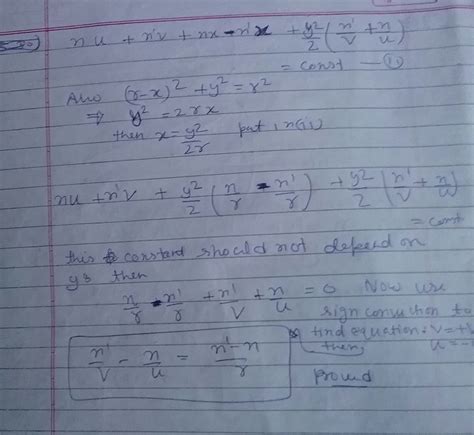 nu + n'v + nx - n'x + y²/2 (n'/v + n/u)
= const — (ii)
Also (r-x)² + y² = r²
⇒ y² = 2rx
then x = y²/2r put in (ii)
nu + n'v + y²/2 (n/r - n'/r) + y²/2 (n'/v + n/u)
= const
this constant should not depend on
y then
n/r - n'/r + n'/v + n/u = 0 Now use
sign convention to
find equation: v=+v
then, u=-
n'/v - n/u = n'-n/r
proved